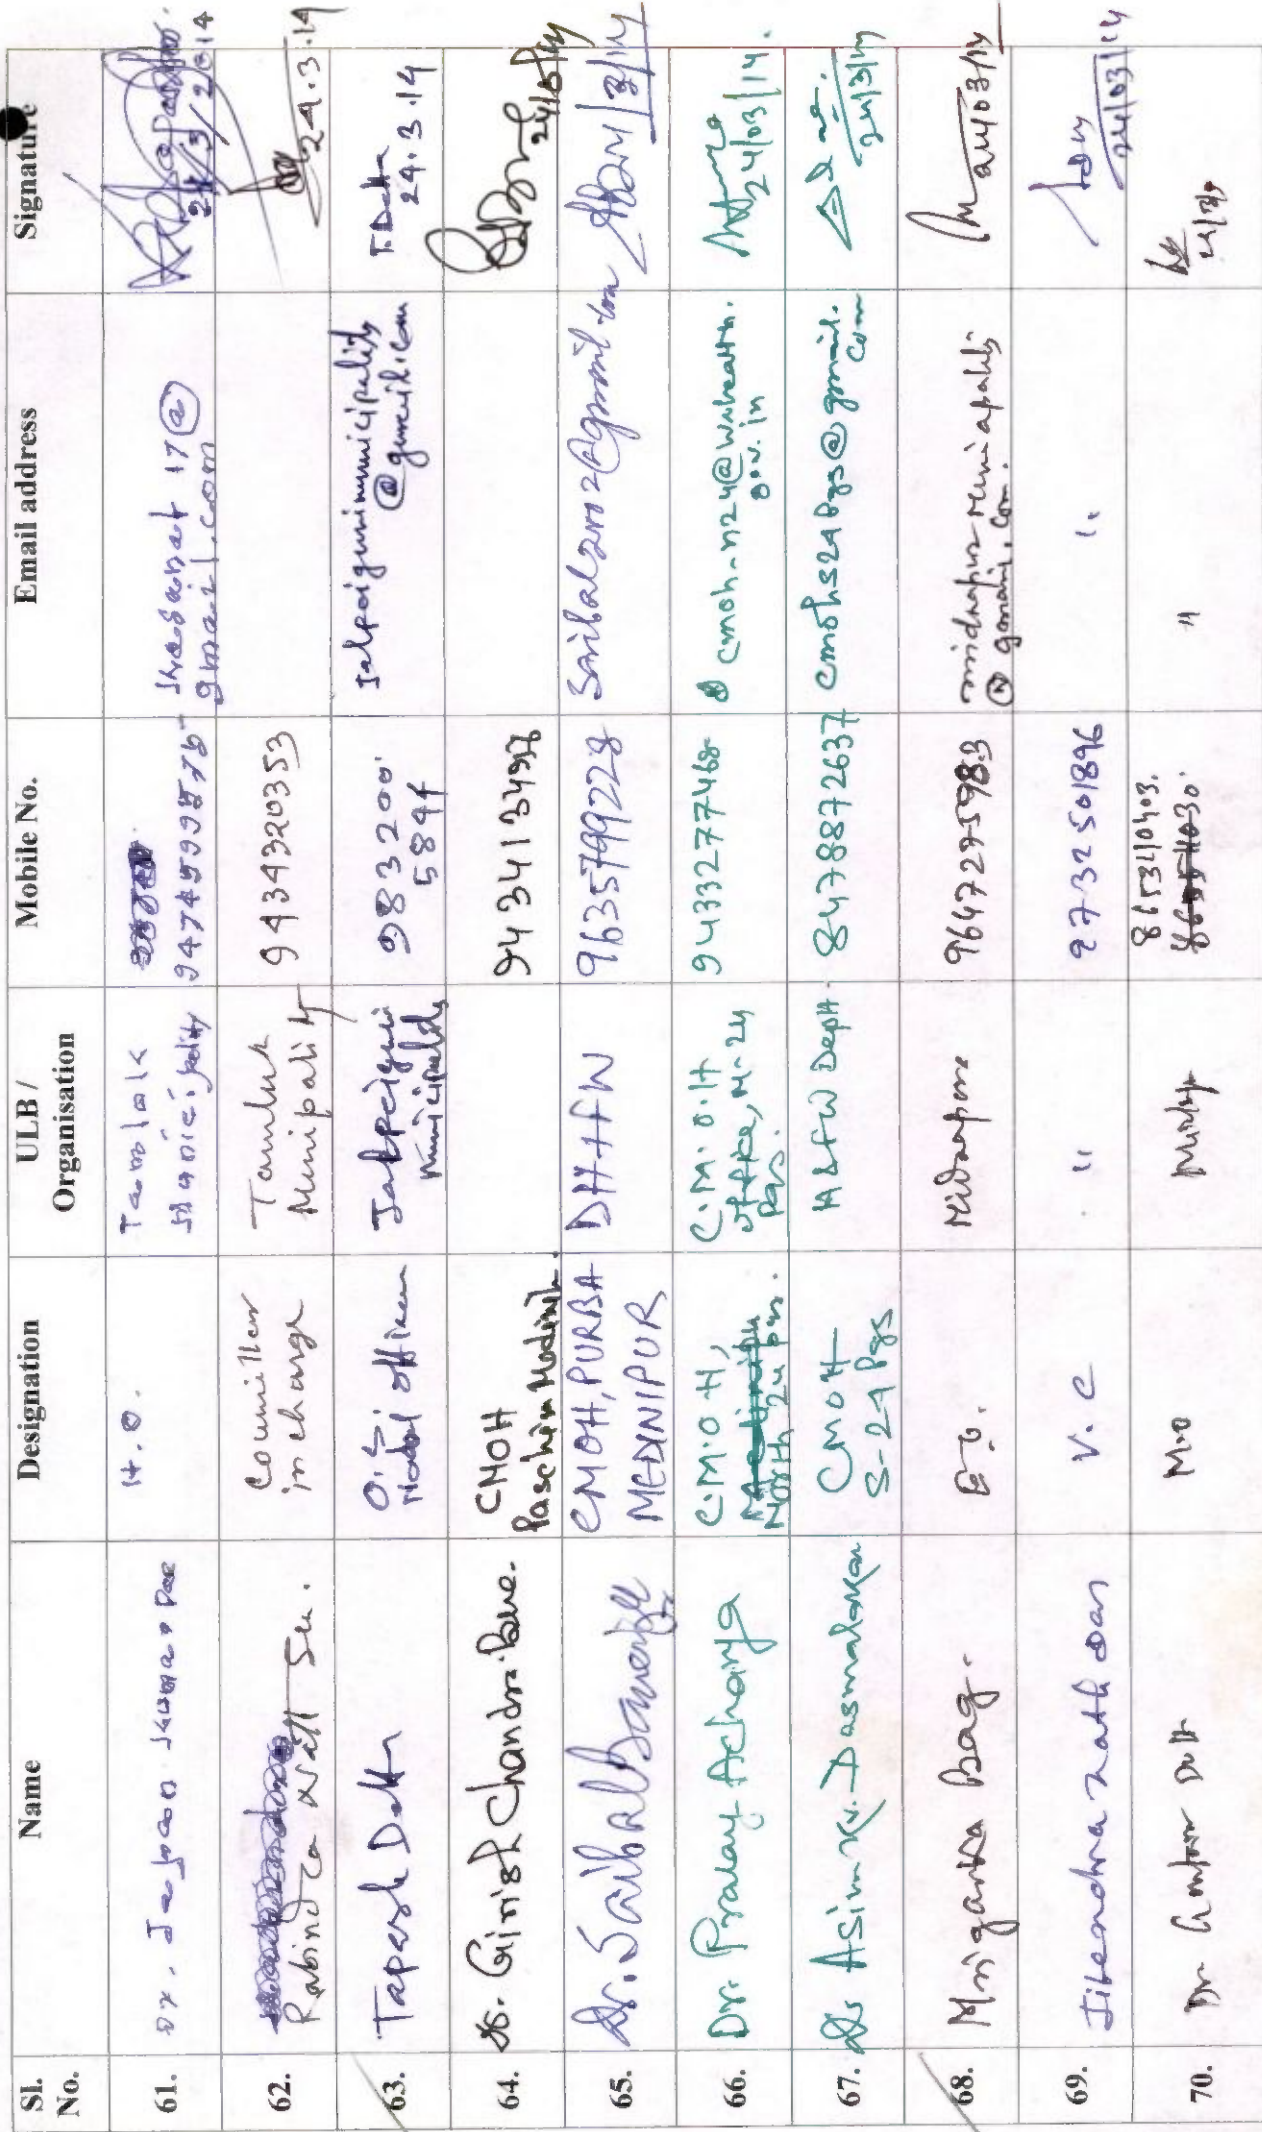 Sl. No.
Name
Designation
ULB / Organisation
Mobile No.
Email address
Signature
61.
Dr.
H.O.
@
gmail.com
24/3/2014
62.
Rabindra Nath Sen.
Councillor
in charge
Tamluk
Munipality
9434320353
24.3.14
63.
Tapash Datta
O.S.
Nodal officer
Jalpaiguri
Municipality
983200
5894
jalpaigurimunicipality
@gmail.com
T. Datta
24.3.14
64.
Dr. Girish Chandra Bera.
CMOH
Paschim Medini
65.
Dr. Saibal Banerjee
CMOH, PURBA
MEDINIPUR
DHFW
9635799228
24/3/14
66.
Dr. Pralay Acharya
C.M.O.H,
North 24 pgs.
C.M.O.H
office, N-24
pgs.
9433277468
cmoh_n24@wbhealth.
gov.in
24/03/14.
67.
Dr Asim Kr. Dasmalakar
CMOH
S-24 Pgs
H&FW Deptt.
8478872637
cmohs24pgs@gmail.
com
24/3/14
68.
Mriganka Bag.
E.O.
Midnapore
9647275983
@gmail.com.
24/03/14
69.
Jitendra Nath Das
V.C
"
9732501896
"
24/03/14
70.
Dr. Goutam Dutt
M.O
"